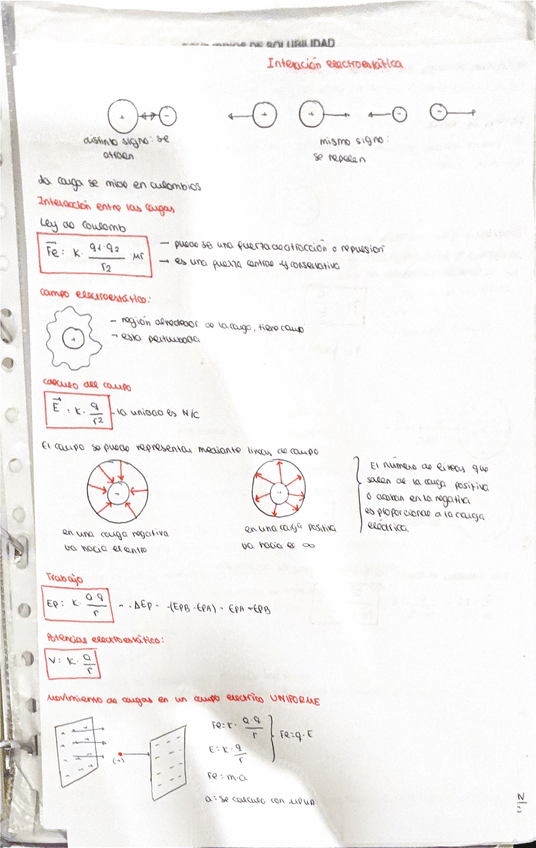 DE SOLUBILIDAD
Interacción electroestática
distinto signo: se
atraen
mismo signo:
se repelen
La carga se mide en culombios
Interacción entre las cargas
Ley de Coulomb
Fe: K · q1·q2 / r2 · ur
— puede se una fuerza de atracción o repulsión
— es una fuerza central y conservativa
campo electroestático:
— región alrededor de la carga, tiene campo
— esta perturbada
calculo del campo
E = K · q / r2 - la unidad es N/C
El campo se puede representar mediante lineas de campo
en una carga negativa
va hacia el centro
en una carga positiva
va hacia es ∞
El número de lineas que
salen de la carga positiva
o acaban en la negativa
es proporcional a la carga
eléctrica.
Trabajo
Ep: K · Q·q / r - - ΔEp = -(EPB - EPA) = EPA - EPB
Potencias electroestático:
V = K · Q / r
Movimiento de cargas en un campo electrico UNIFORME
Fe = K · Q·q / r
E = K · q / r
Fe = q · E
Fe = m·a
a: se calcula con MRUA
N